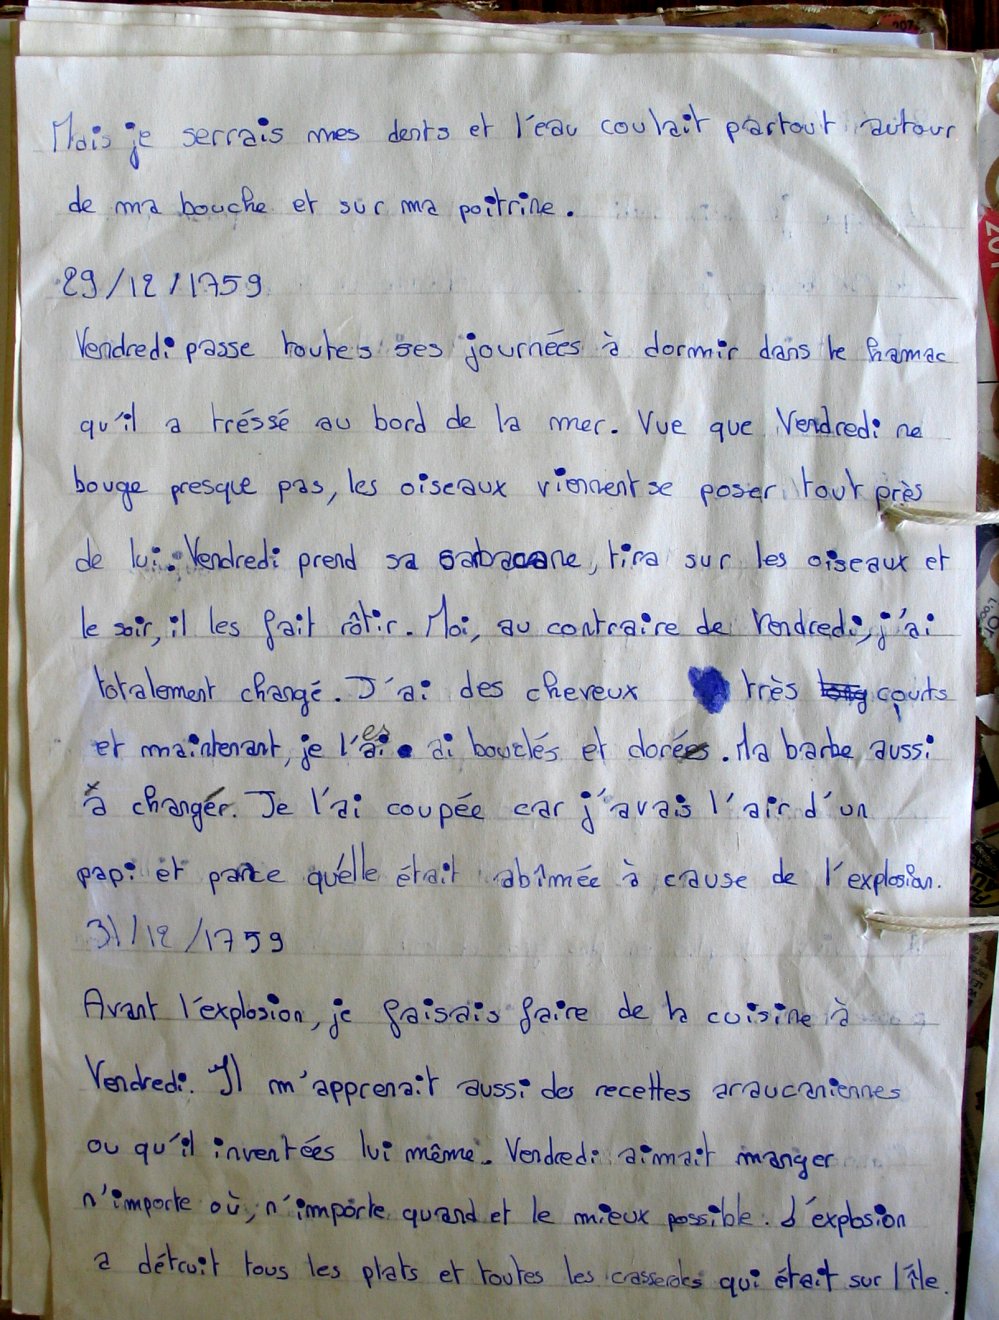 Mais je serrais mes dents et l'eau coulait partout autour
de ma bouche et sur ma poitrine.
29/12/1759
Vendredi passe toutes ses journées à dormir dans le hamac
qu'il a tréssé au bord de la mer. Vue que Vendredi ne
bouge presque pas, les oiseaux viennent se poser tout près
de lui. Vendredi prend sa sabacane, tira sur les oiseaux et
le soir, il les fait rôtir. Moi, au contraire de Vendredi, j'ai
totalement changé. J'ai des cheveux très long courts
et maintenant, je l'es ai bouclés et dorés. Ma barbe aussi
à changér. Je l'ai coupée car j'avais l'air d'un
papi et parce qu'elle était abîmée à cause de l'explosion.
31/12/1759
Avant l'explosion, je faisais faire de la cuisine à
Vendredi. Il m'apprenait aussi des recettes araucaniennes
ou qu'il inventées lui même. Vendredi aimait manger
n'importe où, n'importe quand et le mieux possible. L'explosion
a détruit tous les plats et toutes les casseroles qui était sur l'île.